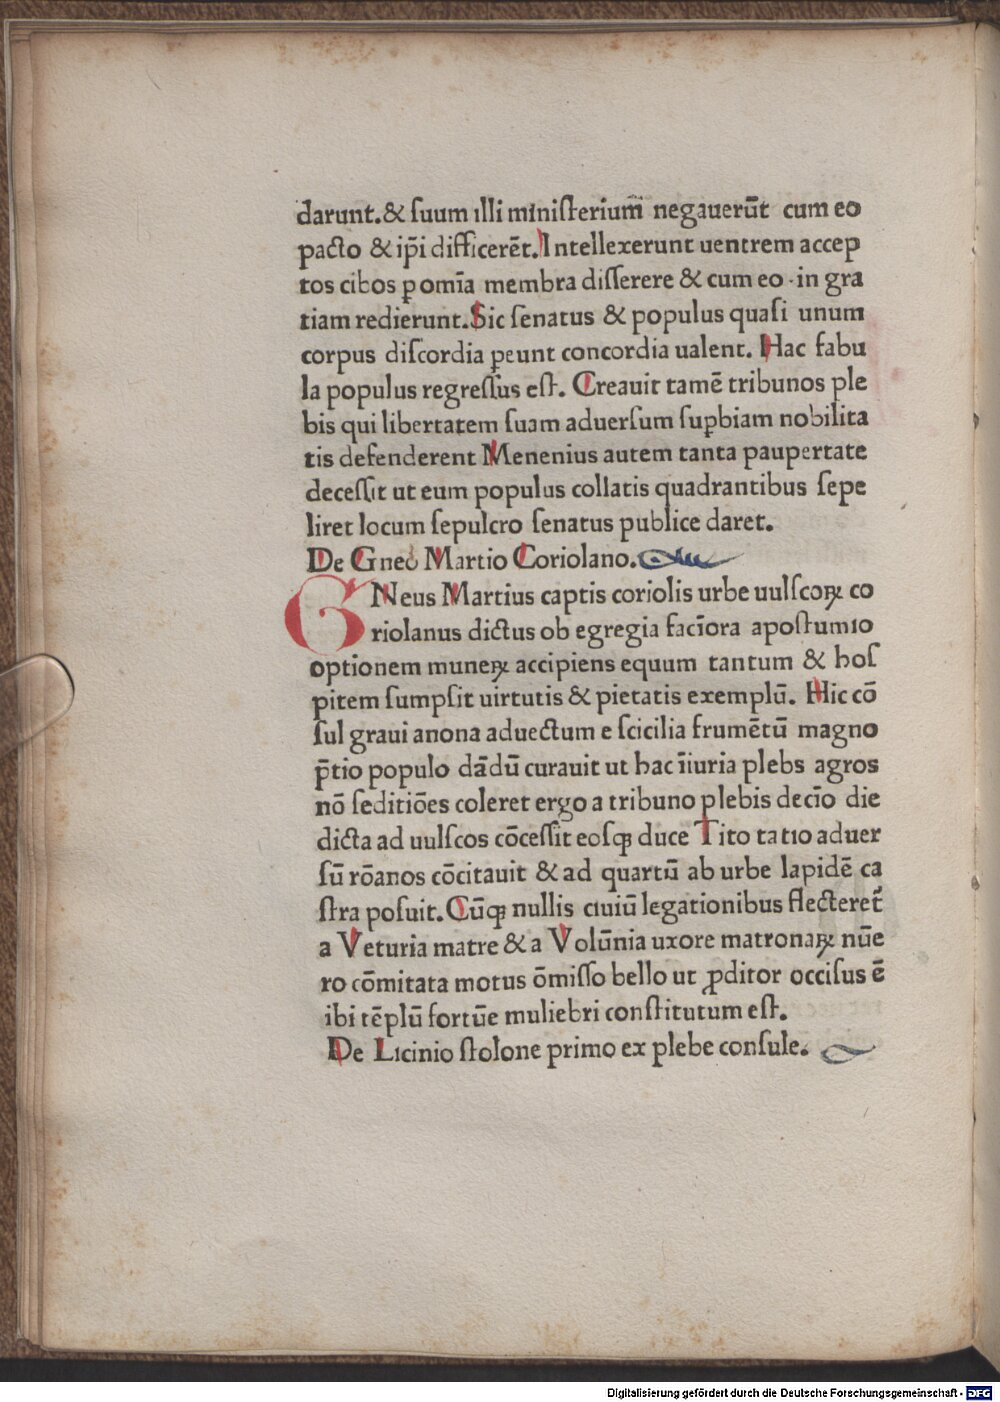 darunt.& ſuum illi miniſterium̄ negauerūt cum eo
pacto & ip̄i difficerēt. Intellexerunt uentrem accep
tos cibos ꝑ omīa membra diſſerere & cum eo · in gra
tiam redierunt. Sic ſenatus & populus quaſi unum
corpus diſcordia ꝑeunt concordia ualent. Hac fabu
la populus regreſſus eſt. Creauit tamē tribunos ple
bis qui libertatem ſuam aduerſum ſuꝑbiam nobilita
tis defenderent Menenius autem tanta paupertate
deceſſit ut eum populus collatis quadrantibus ſepe
liret locum ſepulcro ſenatus publice daret.
De Gneo Martio Coriolano.
GNeus Martius captis coriolis urbe uulſcoꝝ co
riolanus dictus ob egregia facīora apoſtumio
optionem muneꝝ accipiens equum tantum & hoſ
pitem ſumpſit uirtutis & pietatis exemplū. Hic cō
ſul graui anona aduectum e ſcicilia frumētū magno
p̄tio populo dādū curauit ut hac īiuria plebs agros
nō ſeditiōes coleret ergo a tribuno plebis decīo die
dicta ad uulſcos cōceſſit eoſqꝫ duce Tito tatio aduer
ſū rōanos cōcitauit & ad quartū ab urbe lapidē ca
ſtra poſuit. Cūqꝫ nullis ciuiū legationibus flecteret̄
a Veturia matre & a Volūnia uxore matronaꝝ nūe
ro cōmitata motus ōmiſſo bello ut ꝓditor occiſus ē
ibi tēplū fortūe muliebri conſtitutum eſt.
De Licinio ſtolone primo ex plebe conſule.
Digitalisierung gefördert durch die Deutsche Forschungsgemeinschaft - DFG